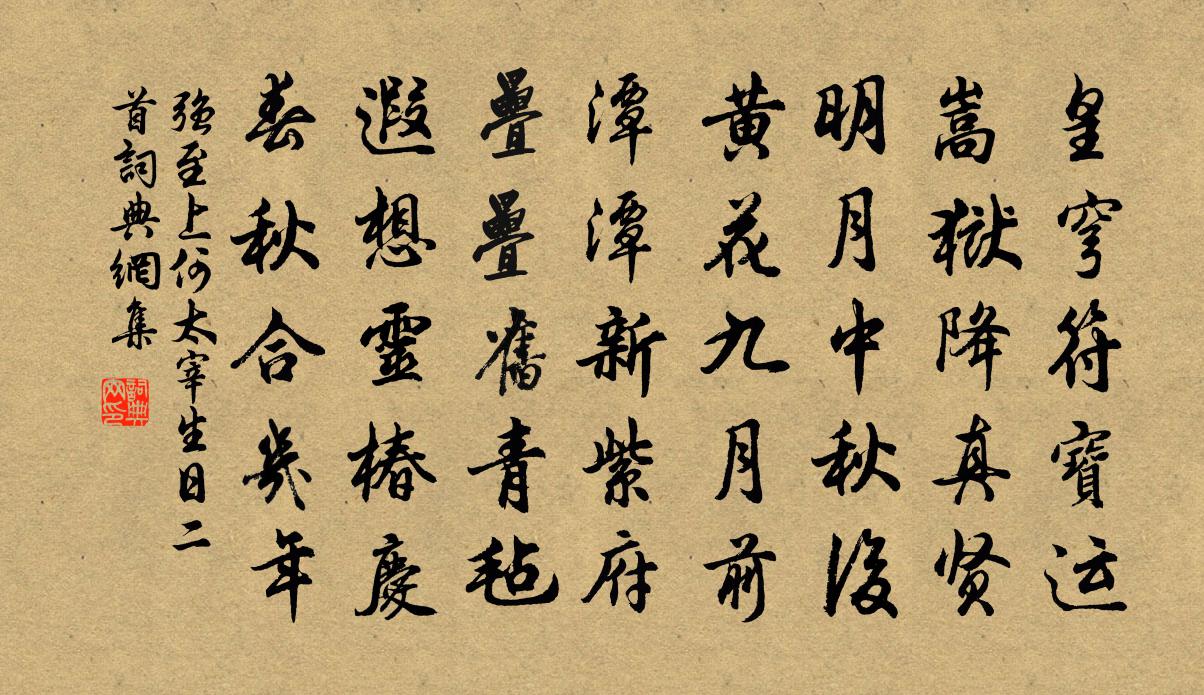 皇穹符寶运
嵩嶽降真贤
明月中秋後
黄花九月前
潭潭新紫府
疊疊舊青毡
遐想靈椿慶
春秋合幾年
強至上何太宰生日二
首詞典網集
詞典網印